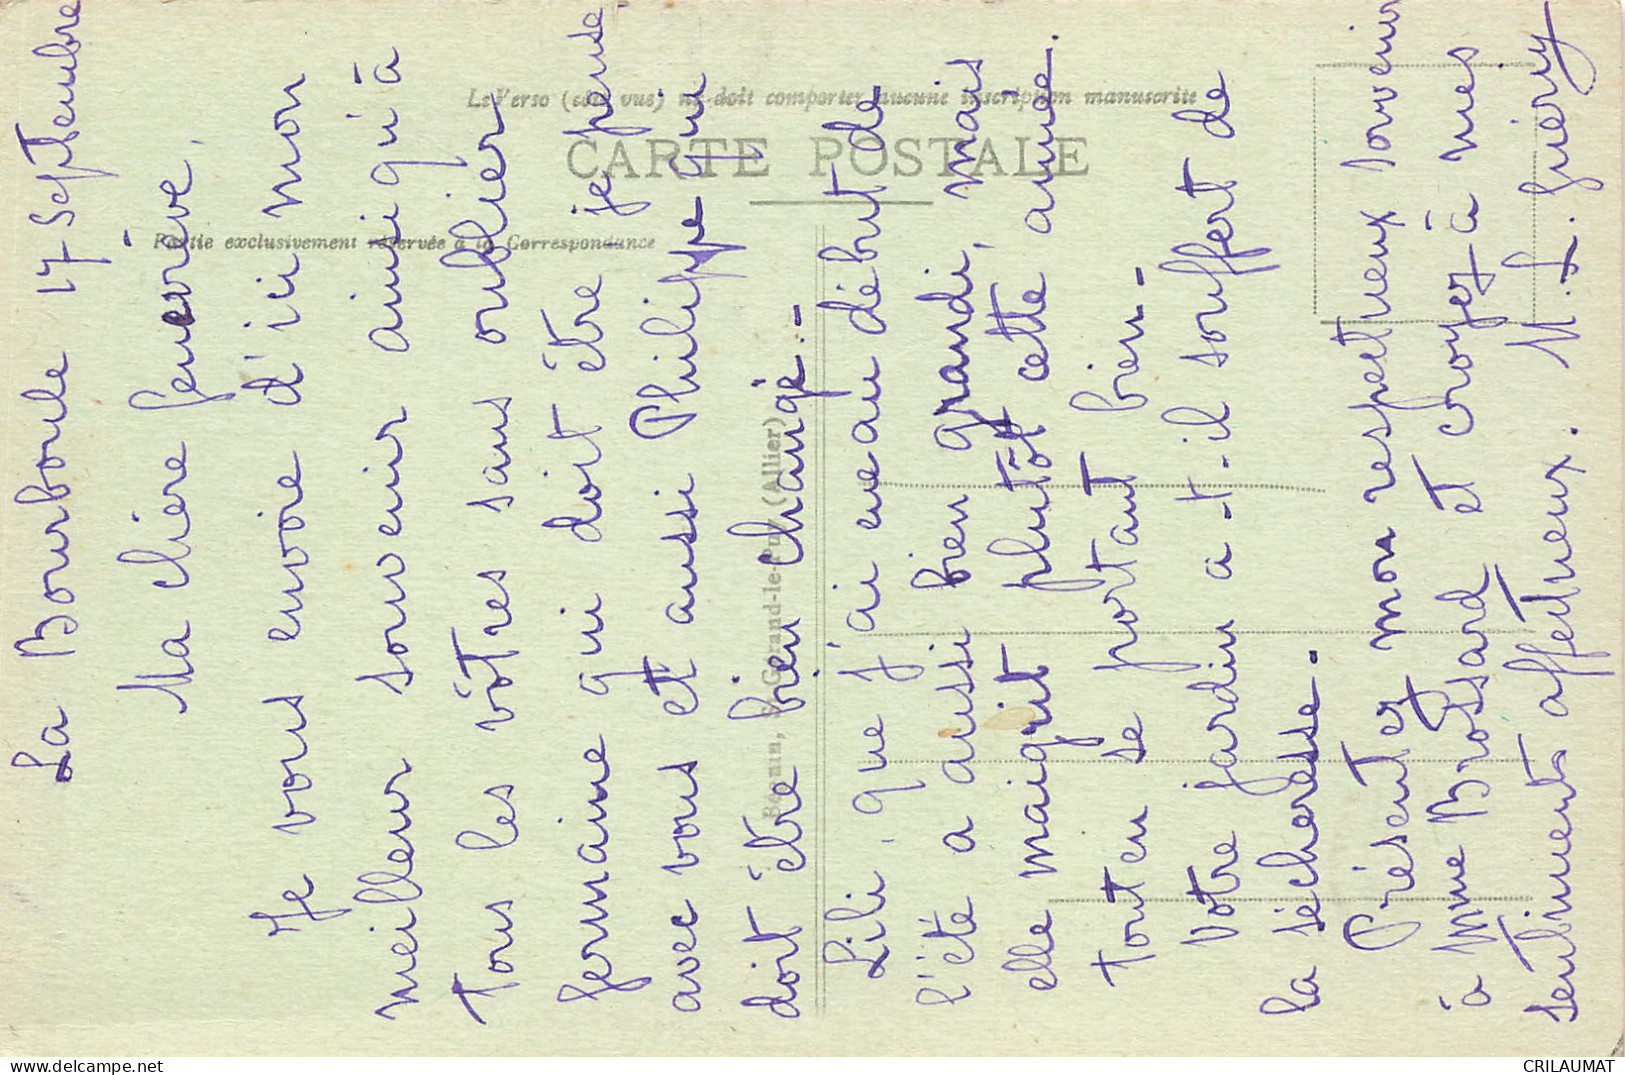 La Bourboule 17 Septembre
Ma chère Geneviève,
Je vous envoie d'ici mon
meilleur souvenir ainsi qu'à
tous les vôtres sans oublier
Germaine qui doit être je pense
avec vous et aussi Philippe qui
doit être bien changé.-
Lili, que j'ai vue au début de
l'été a aussi bien grandi, mais
elle maigrit plutôt cette année.
tout en se portant bien-
Votre jardin a-t-il souffert de
la sécheresse-
Présentez mon respectueux souvenir
à Mme Brossard et croyez à mes
sentiments affectueux. M.L. Guéry
Le Verso (côté vue) ne doit comporter aucune inscription manuscrite
CARTE POSTALE
Partie exclusivement réservée à la Correspondance
Bégnin, St-Gérand-le-Puy (Allier)
delcampe.net
CRILAUMAT